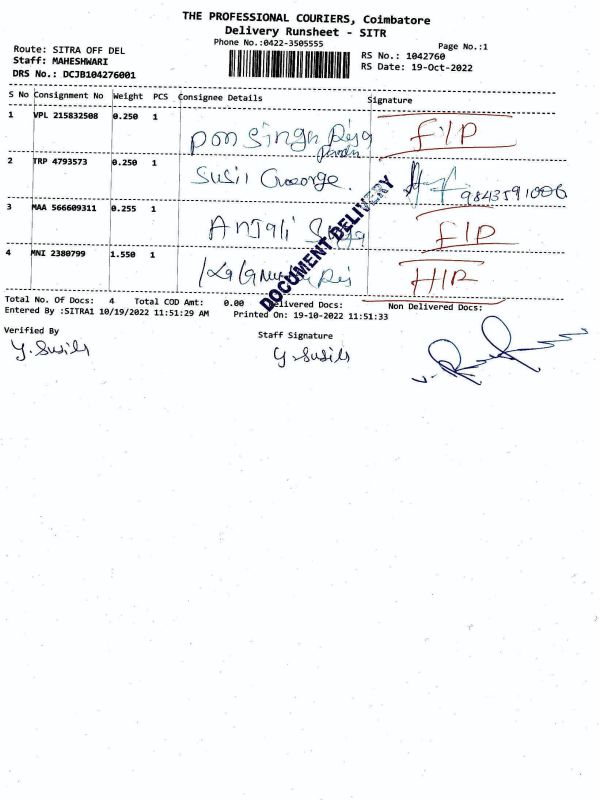 THE PROFESSIONAL COURIERS, Coimbatore
Delivery Runsheet - SITR
Phone No.:0422-3505555
Page No.:1
Route: SITRA OFF DEL
RS No.: 1042760
Staff: MAHESHWARI
RS Date: 19-Oct-2022
DRS No.: DCJB104276001
S No Consignment No Weight PCS Consignee Details Signature
1 VPL 215832508 0.250 1 Pon Singh F/P
2 TRP 4793573 0.250 1 Susil George. 9843591006
3 MAA 566609311 0.255 1 Anjali F/P
4 MNI 2380799 1.550 1 H/P
DOCUMENT DELIVERY
Total No. Of Docs: 4 Total COD Amt: 0.00 Delivered Docs: Non Delivered Docs:
Entered By :SITRA1 10/19/2022 11:51:29 AM Printed On: 19-10-2022 11:51:33
Verified By Staff Signature
Y. Susils Y. Susils